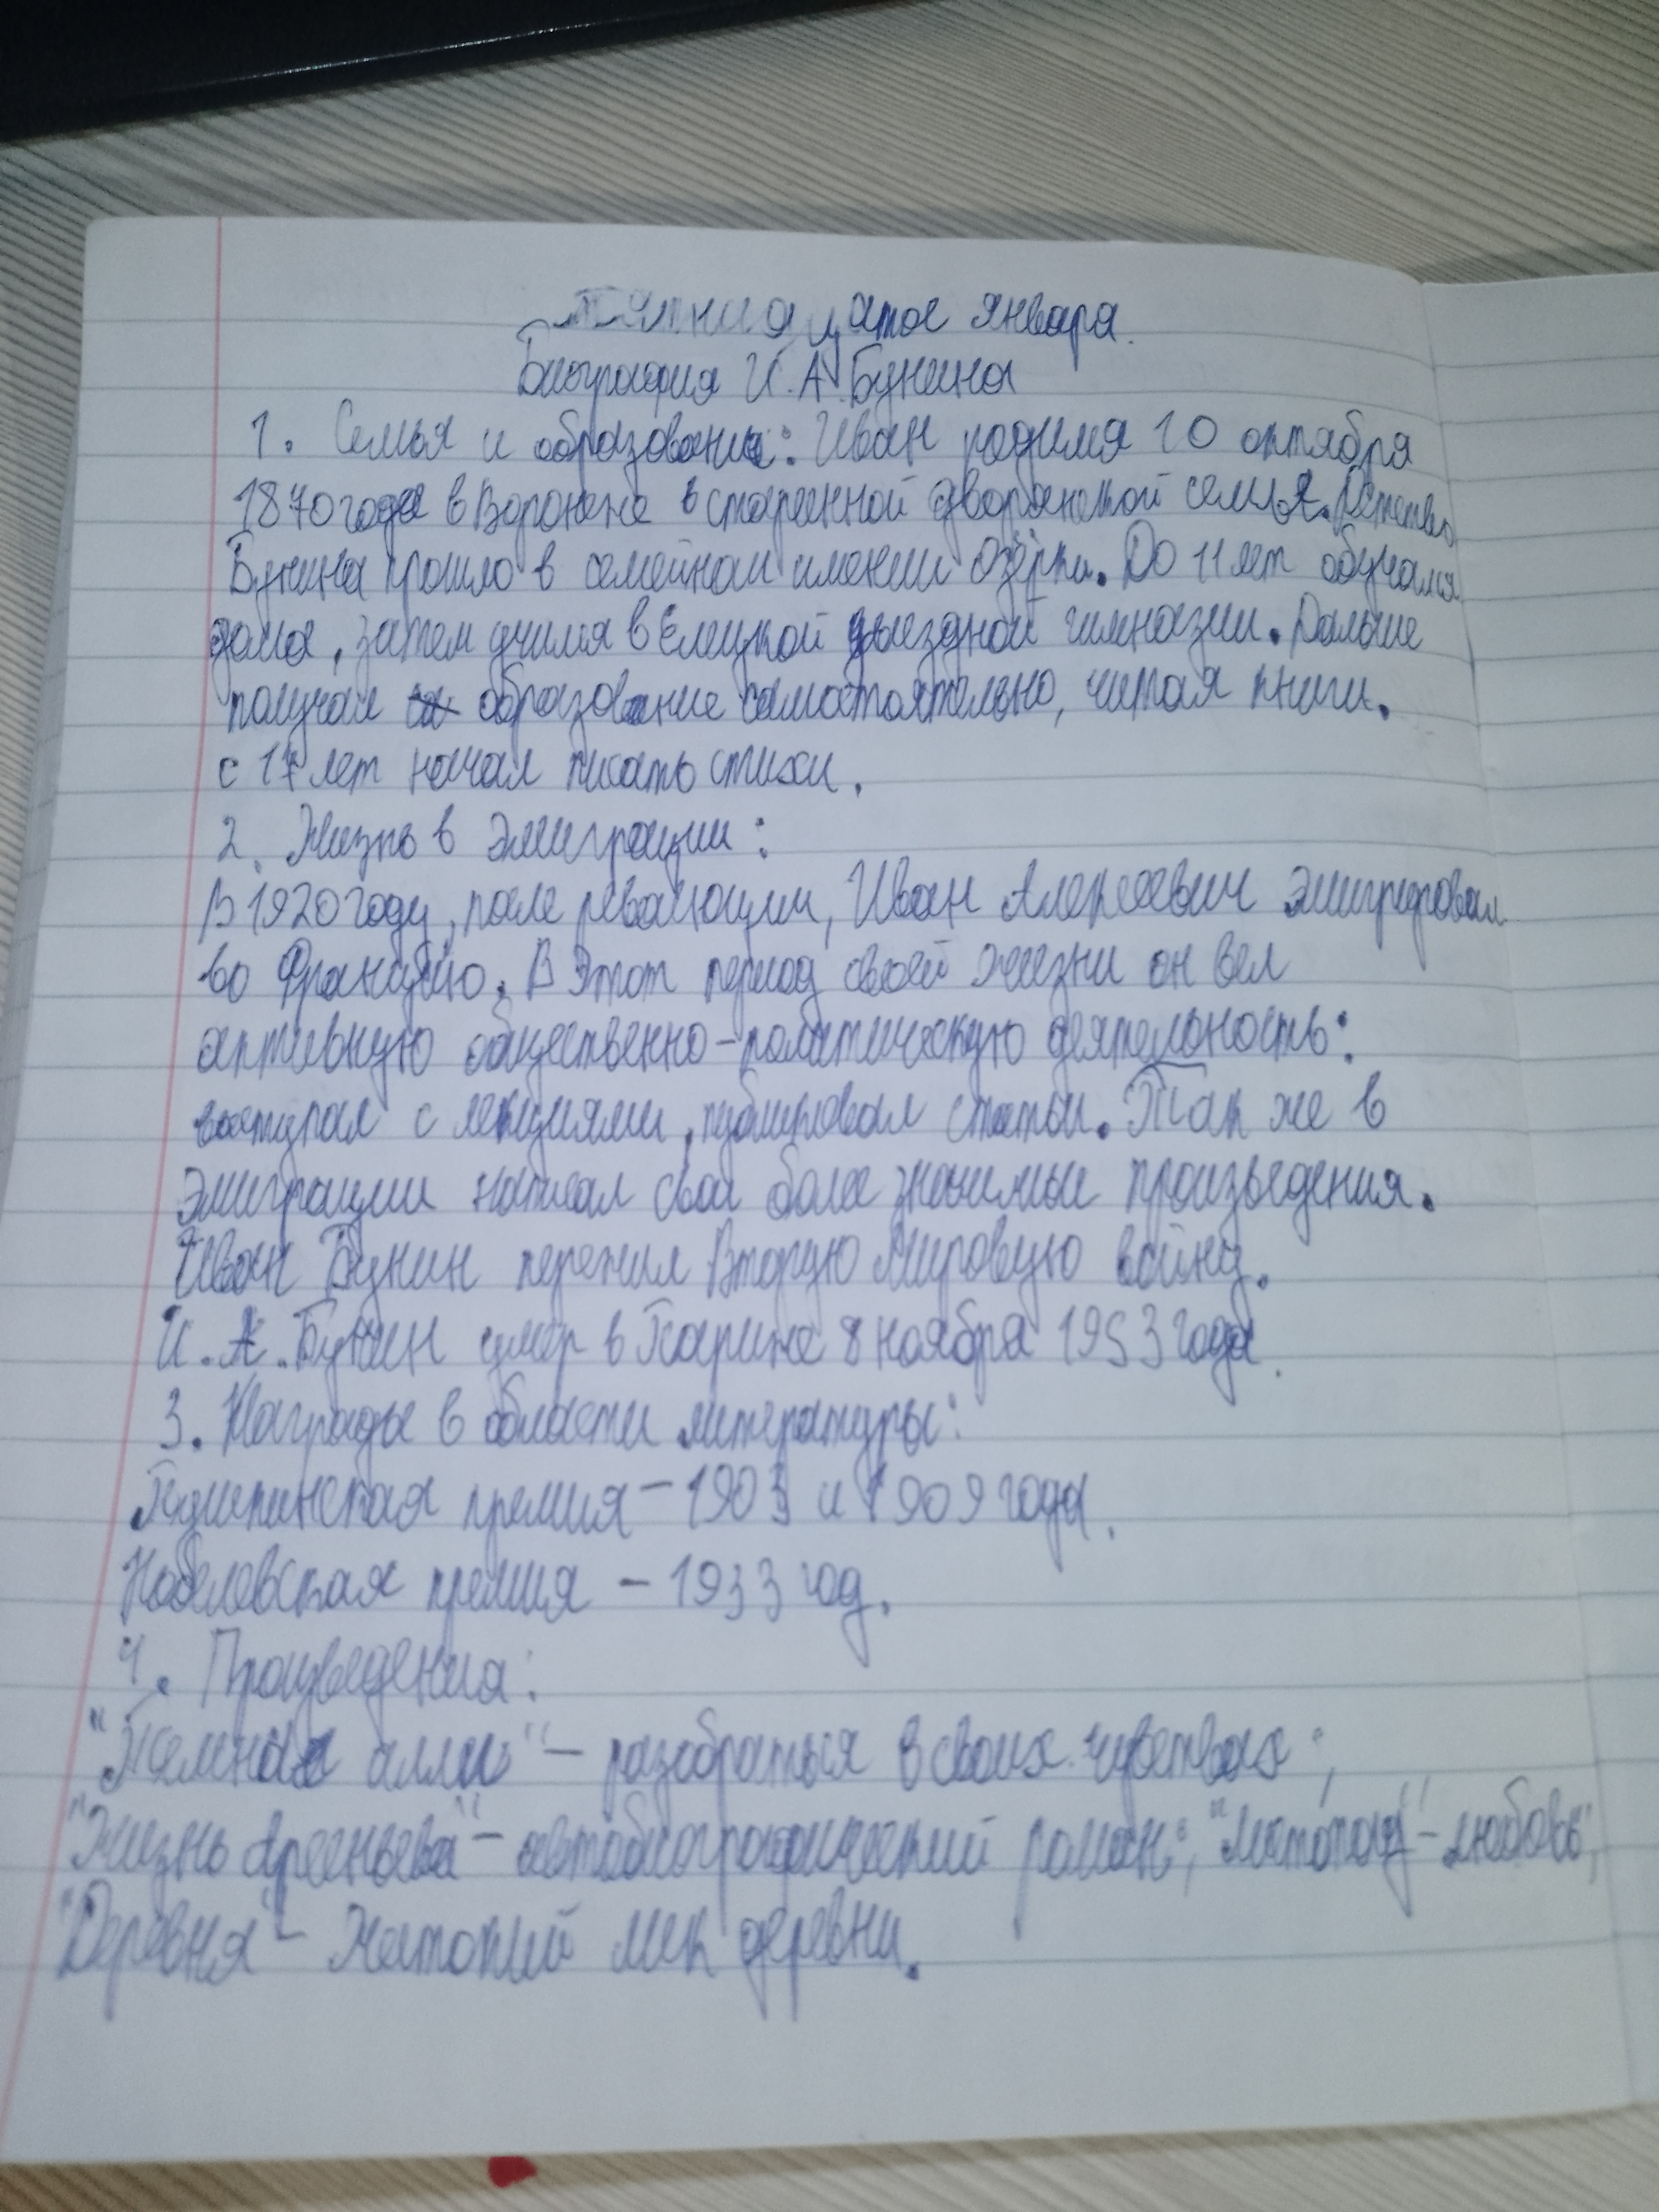 Пятнадцатое января.
Биография И. А. Бунина
1. Семья и образование: Иван родился 10 октября
1870 года в Воронеже в старинной дворянской семье. Детство
Бунина прошло в семейном имении Озёрки. До 11 лет обучался
дома, затем учился в Елецкой уездной гимназии. Дальше
получал образование самостоятельно, читая книги.
с 17 лет начал писать стихи.
2. Жизнь в эмиграции:
В 1920 году, после революции, Иван Алексеевич эмигрировал
во Францию. В этот период своей жизни он вел
активную общественно-политическую деятельность:
выступал с лекциями, публиковал статьи. Так же в
эмиграции написал свои более значимые произведения.
Иван Бунин пережил Вторую Мировую войну.
И. А. Бунин умер в Париже 8 ноября 1953 года.
3. Награды в области литературы:
Пушкинская премия - 1903 и 1909 года.
Нобелевская премия - 1933 год.
4. Произведения:
"Темные аллеи" - разобраться в своих чувствах;
"Жизнь Арсеньева" - автобиографический роман; - любовь;
"Деревня" - Жестокий мир деревни.